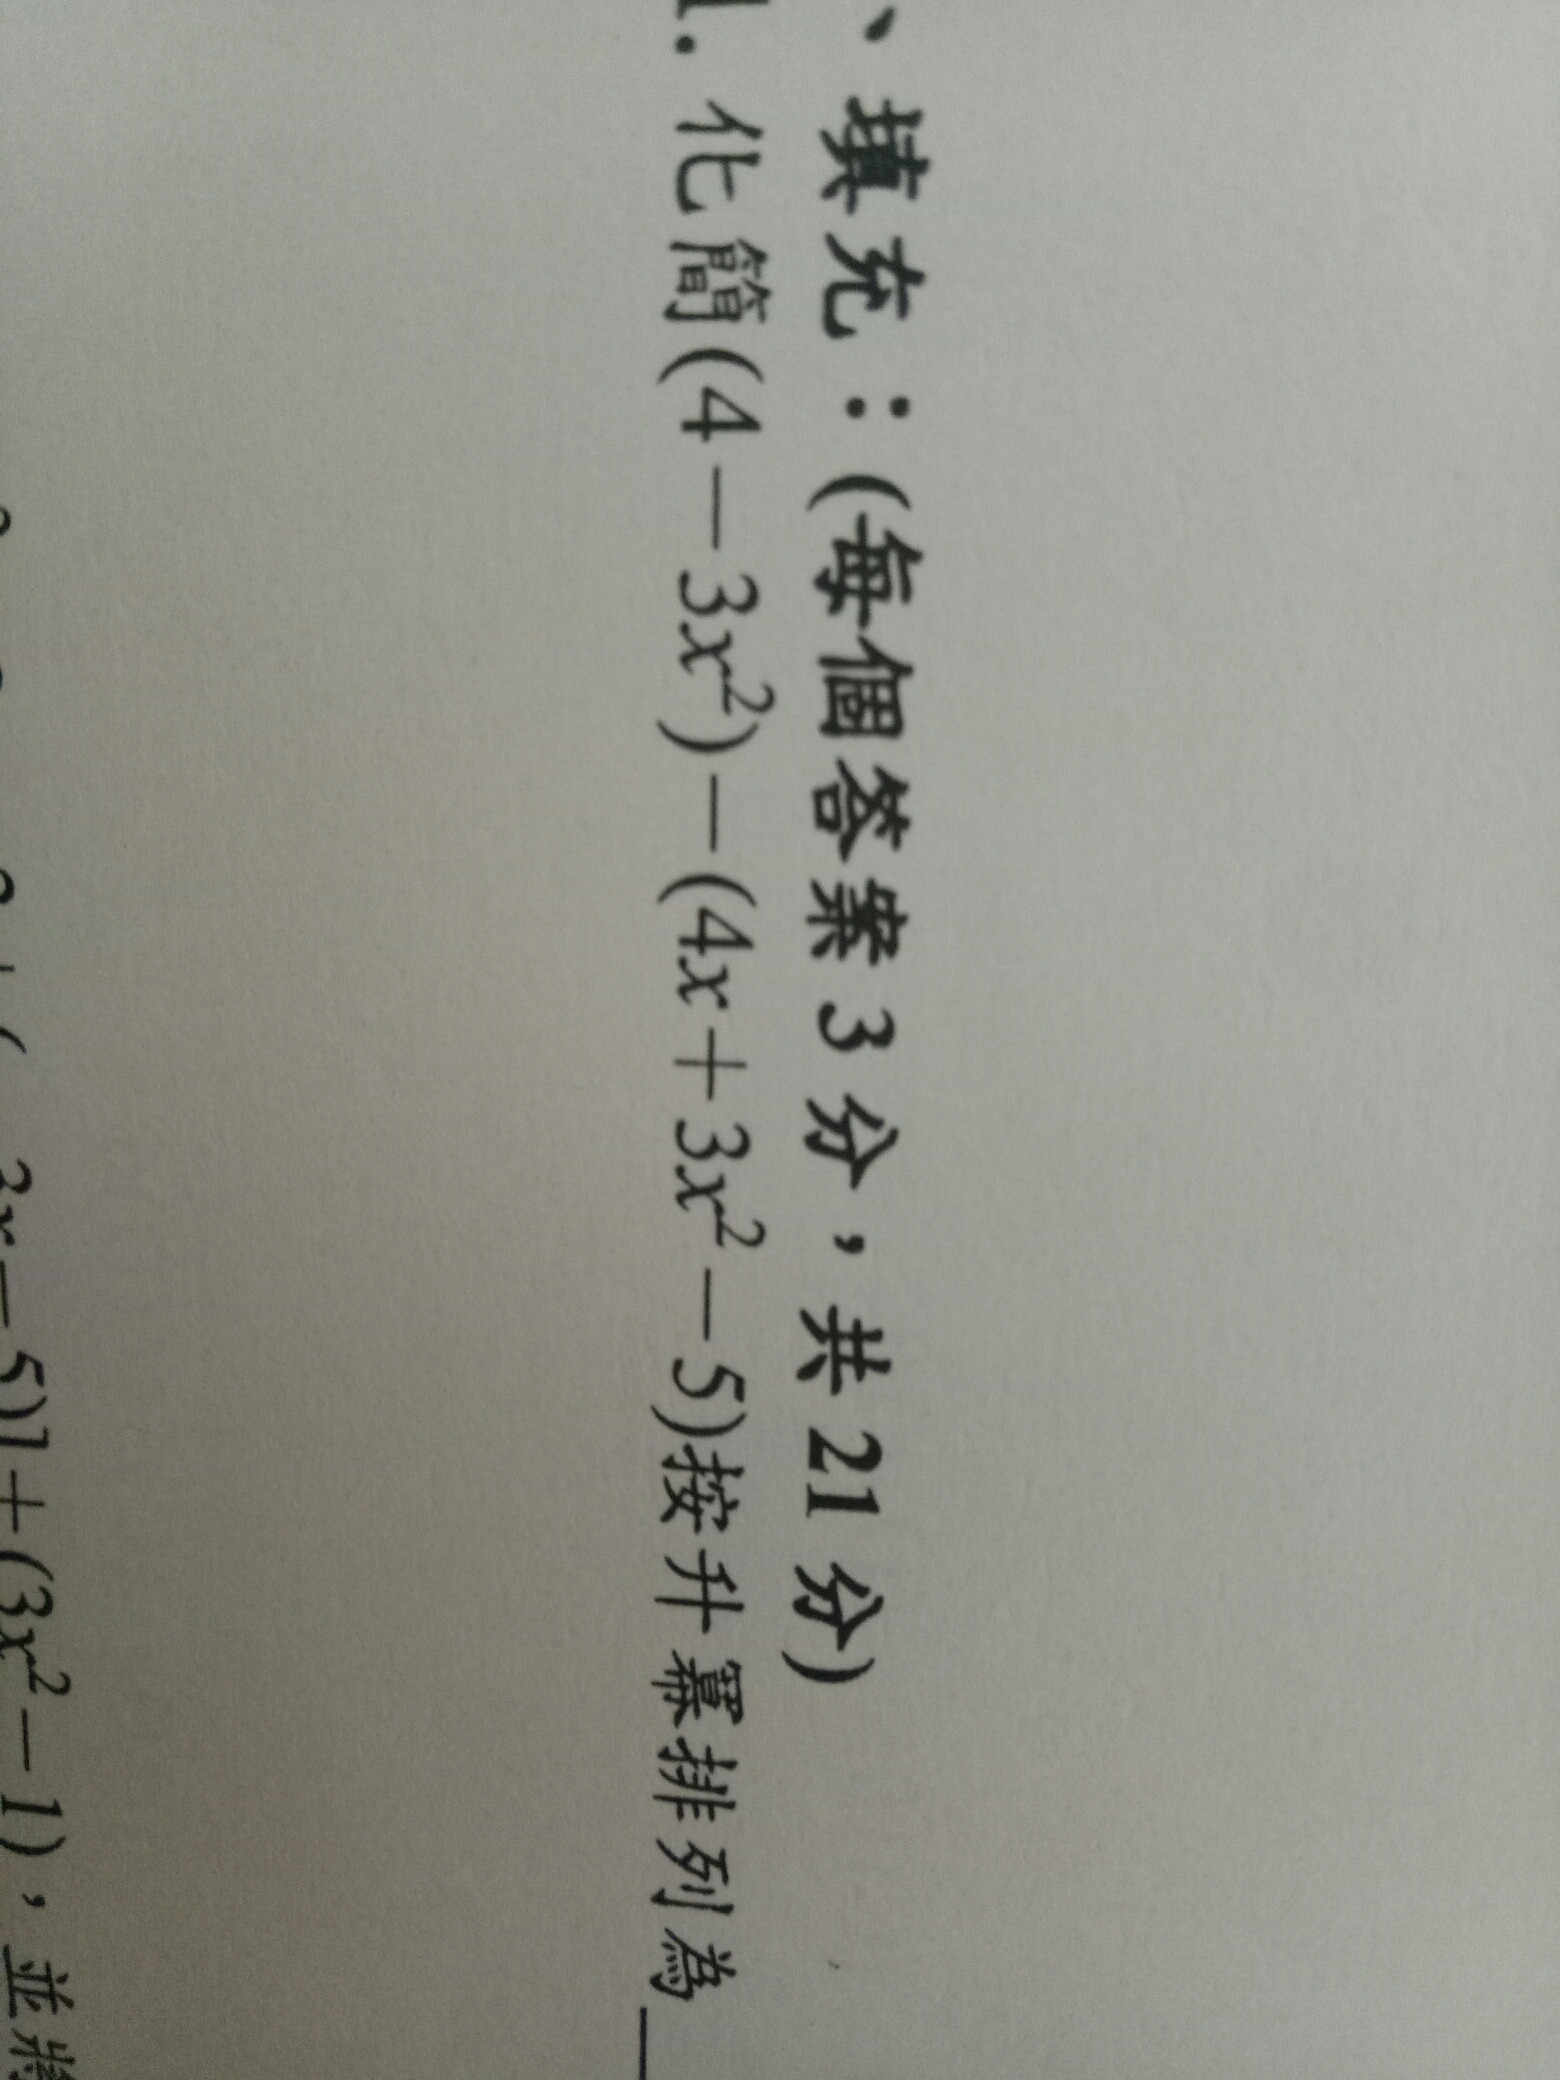 、填充：(每個答案 3 分，共 21 分)
1. 化簡(4－3x²)－(4x＋3x²－5)按升冪排列為
3x－5)]＋(3x²－1)，並將